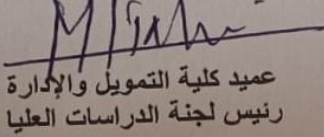 عميد كلية التمويل والإدارة
رئيس لجنة الدراسات العليا